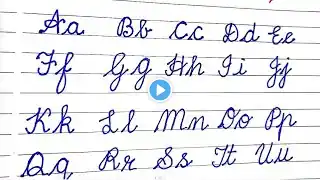 Aa Bb Cc Dd Ee
Ff Gg Hh Ii Jj
Kk Ll Mn Oo Pp
Qq Rr Ss Tt Uu